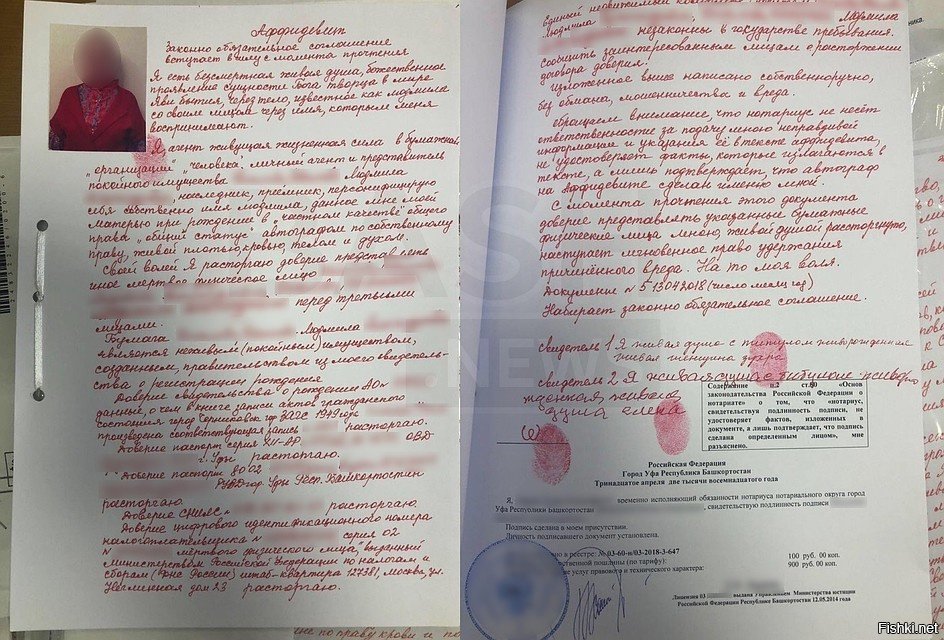 Аффидевит
Законно обязательное соглашение
вступает в силу с момента прочтения
Я есть бессмертная живая душа, божественное
проявление сущности Бога Творца в мире
Яви бытия, через тело, известное как Людмила
со своим лицом через имя, которым меня
воспринимают.
Я, агент живущая жизненная сила в бумажной
„организации" „человека", личный агент и представитель
покойного имущества Людмила
, наследник, приемник, персонифицирую
себя собственно имя Людмила, данное мне моей
матерью при рождение в „частном качестве" общего
права „общий статус" автографом по собственному
праву, живой плотью, кровью, телом и духом.
Своей волей Я расторгаю доверие представлять
иное мертвое физическое лицо
перед третьими
лицами.
Бумага Людмила
является неживым (покойным) имуществом,
созданным, правительством из моего свидетель-
ства о регистрации рождения.
Доверие свидетельства о рождении АО
данный, о чем в книге записи актов гражданского
состояния город Черниковск гор ЗАГС 1949 года
произведена соответствующая запись расторгаю.
Доверие паспорт серия XII-АР ОВД
г. Уфы расторгаю.
Доверие паспорт 80 02
РУВД гор. Уфы Респ. Башкортостан
расторгаю.
Доверие СНИЛС расторгаю.
Доверие цифрового идентификационного номера
налогоплательщика N серия 02
N мертвого физического лица, выданный
Министерством Российской Федерации по налогам и
сборам (ФНС России) штаб-квартира 127381, Москва, ул.
Неглинная дом 23 расторгаю.
единый недвижимый
Людмила Людмила
незаконны в государстве пребывания.
Сообщить заинтересованным лицам о расторжении
договора доверия.
Изложенное выше написано собственноручно,
без обмана, мошенничества и вреда.
Обращаем внимание, что нотариус не несёт
ответственности за подачу мною неправдивой
информации и указания её в тексте аффидевита,
не удостоверяет факты, которые излагаются в
тексте, а лишь подтверждает, что автограф
на Аффидевите сделан именно мной.
С момента прочтения этого документа
доверие представлять указанные бумажные
физические лица мною, живой душой расторгнуто,
наступает мгновенное право удержания
причинённого вреда. На то моя воля.
Документ N 5 13042018 (число месяц год)
Набирает законно обязательное соглашение.
Свидетель 1 Я живая душа с титулом живорожденная
живая женщина
Свидетель 2 Я живая душа с титулом живоро-
жденная живая
душа Елена
Содержание п.2 ст.80 «Основ
законодательства Российской Федерации о
нотариате» о том, что «нотариус,
свидетельствуя подлинность подписи, не
удостоверяет фактов, изложенных в
документе, а лишь подтверждает, что подпись
сделана определенным лицом», мне
разъяснено.
Российская Федерация
Город Уфа Республика Башкортостан
Тринадцатое апреля две тысячи восемнадцатого года
Я, временно исполняющий обязанности нотариуса нотариального округа город
Уфа Республики Башкортостан , свидетельствую подлинность подписи
Подпись сделана в моем присутствии.
Личность подписавшего документ установлена.
в реестре: № 03-60-н/03-2018-3-647
(по тарифу): 100 руб. 00 коп.
услуг правового и технического характера: 900 руб. 00 коп.
Лицензия 03 выдана Управлением Министерства юстиции
Российской Федерации Республике Башкортостан 12.05.2014 года
Fishki.net